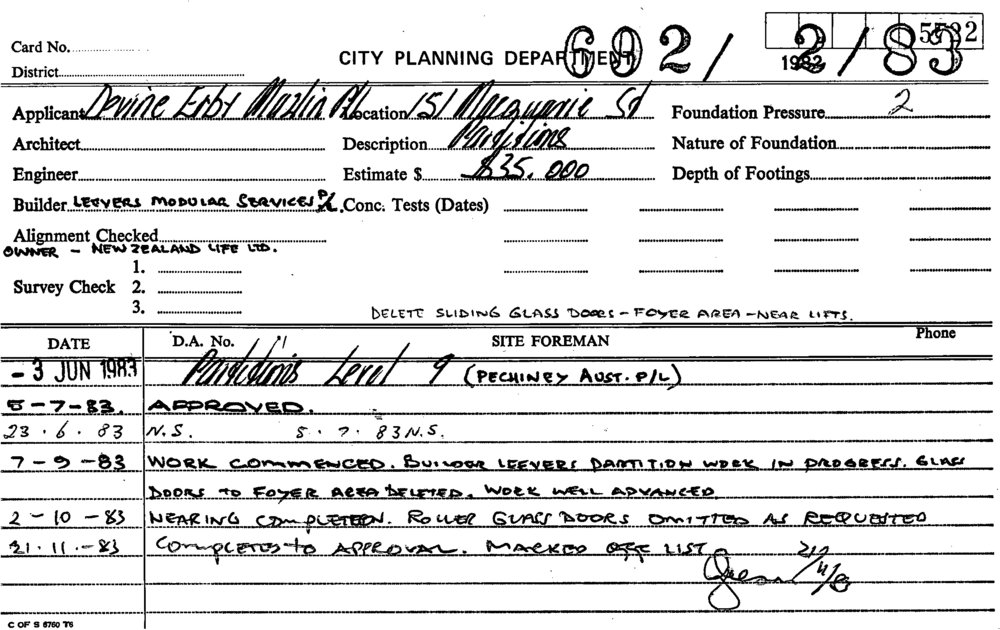 Card No.
5532
CITY PLANNING DEPARTMENT 692/2/83
District
1982
Applicant Devine Erby Mazlin P/L Location 151 Macquarie St Foundation Pressure 2
Architect Description Partitions Nature of Foundation
Engineer Estimate $ $35.000 Depth of Footings
Builder LEEVERS MODULAR SERVICES P/L. Conc. Tests (Dates)
Alignment Checked
OWNER - NEW ZEALAND LIFE LTD.
1.
Survey Check 2.
3.
DELETE SLIDING GLASS DOORS - FOYER AREA - NEAR LIFTS.
DATE D.A. No. SITE FOREMAN Phone
- 3 JUN 1983 Partitions Level 9 (PECHINEY AUST. P/L)
5-7-83. APPROVED.
23.6.83 N.S. 5.7.83 N.S.
7-9-83 WORK COMMENCED. BUILDER LEEVERS PARTITION WORK IN PROGRESS. GLASS
DOORS TO FOYER AREA DELETED. WORK WELL ADVANCED
2-10-83 NEARING COMPLETEON. ROLLER GLASS DOORS OMITTED AS REQUESTED
21.11.-83 COMPLETED TO APPROVAL. MARKED OFF LIST
C OF S 6760 T6